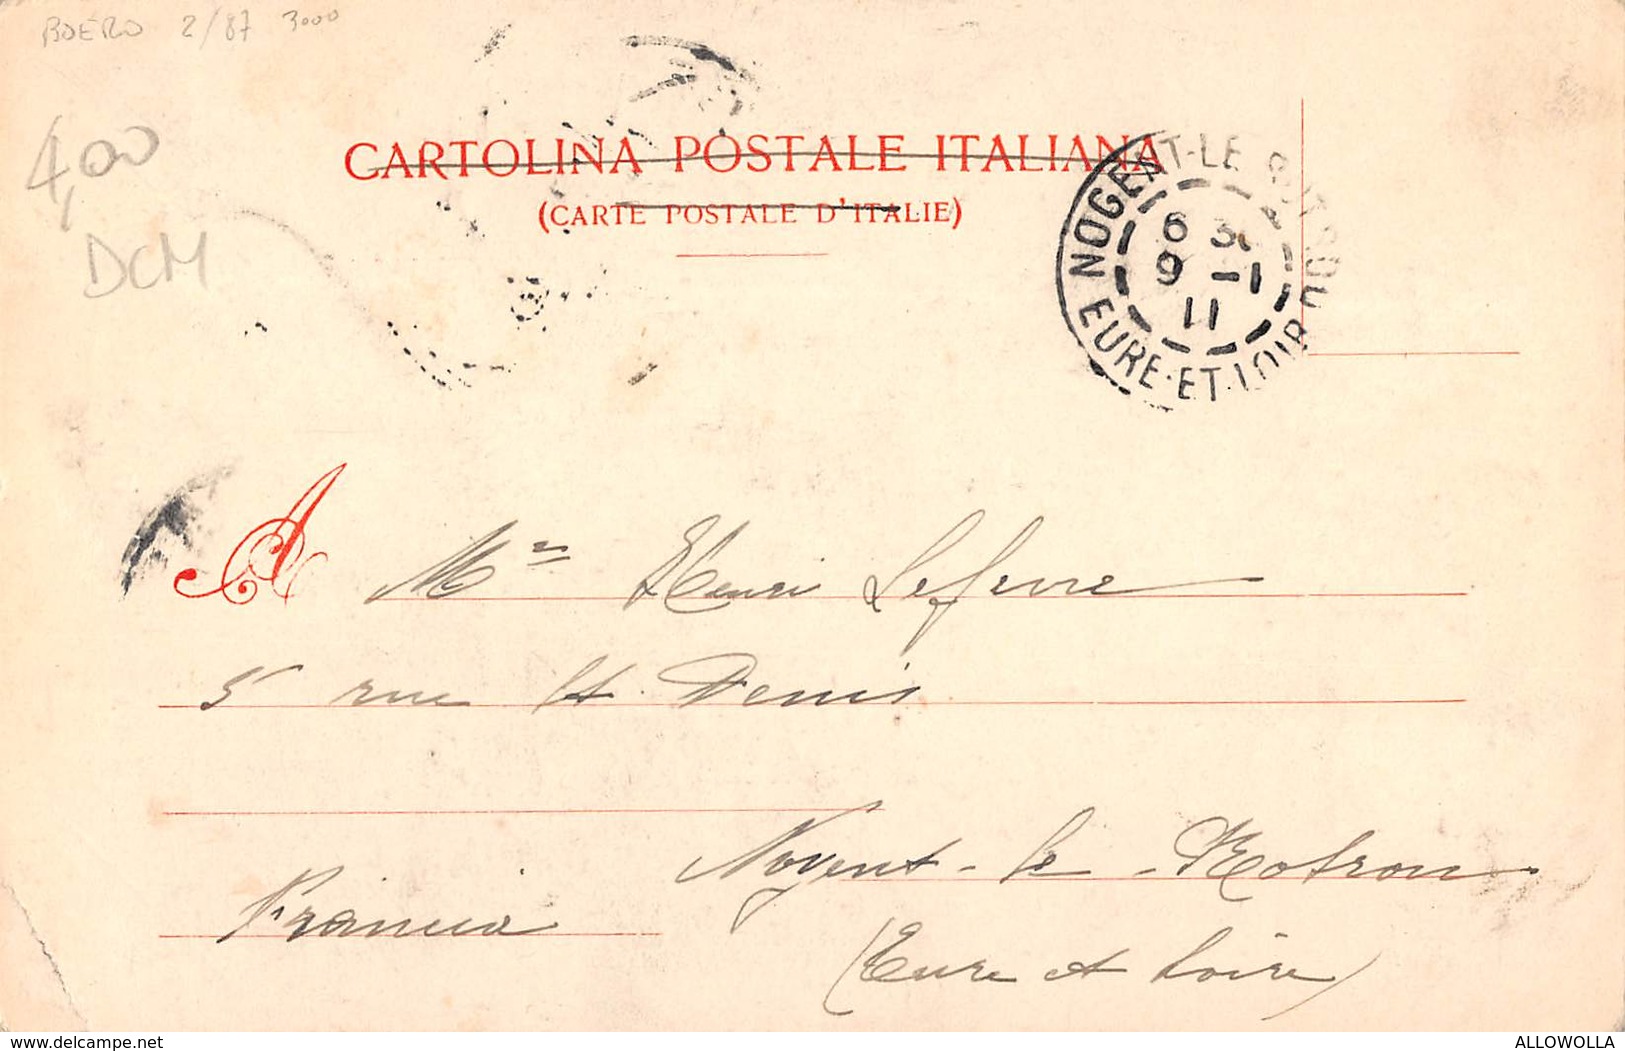 BOERO 2/87 3000
4,00
DCM
CARTOLINA POSTALE ITALIANA
(CARTE POSTALE D'ITALIE)
NOGENT-LE
EURE-ET-LOIR
6 3
9 -1
11
A Mme Henri Lefevre
5 rue St Denis
Nogent-le-Rotrou
Francia
(Eure et Loire)
delcampe.net
ALLOWOLLA